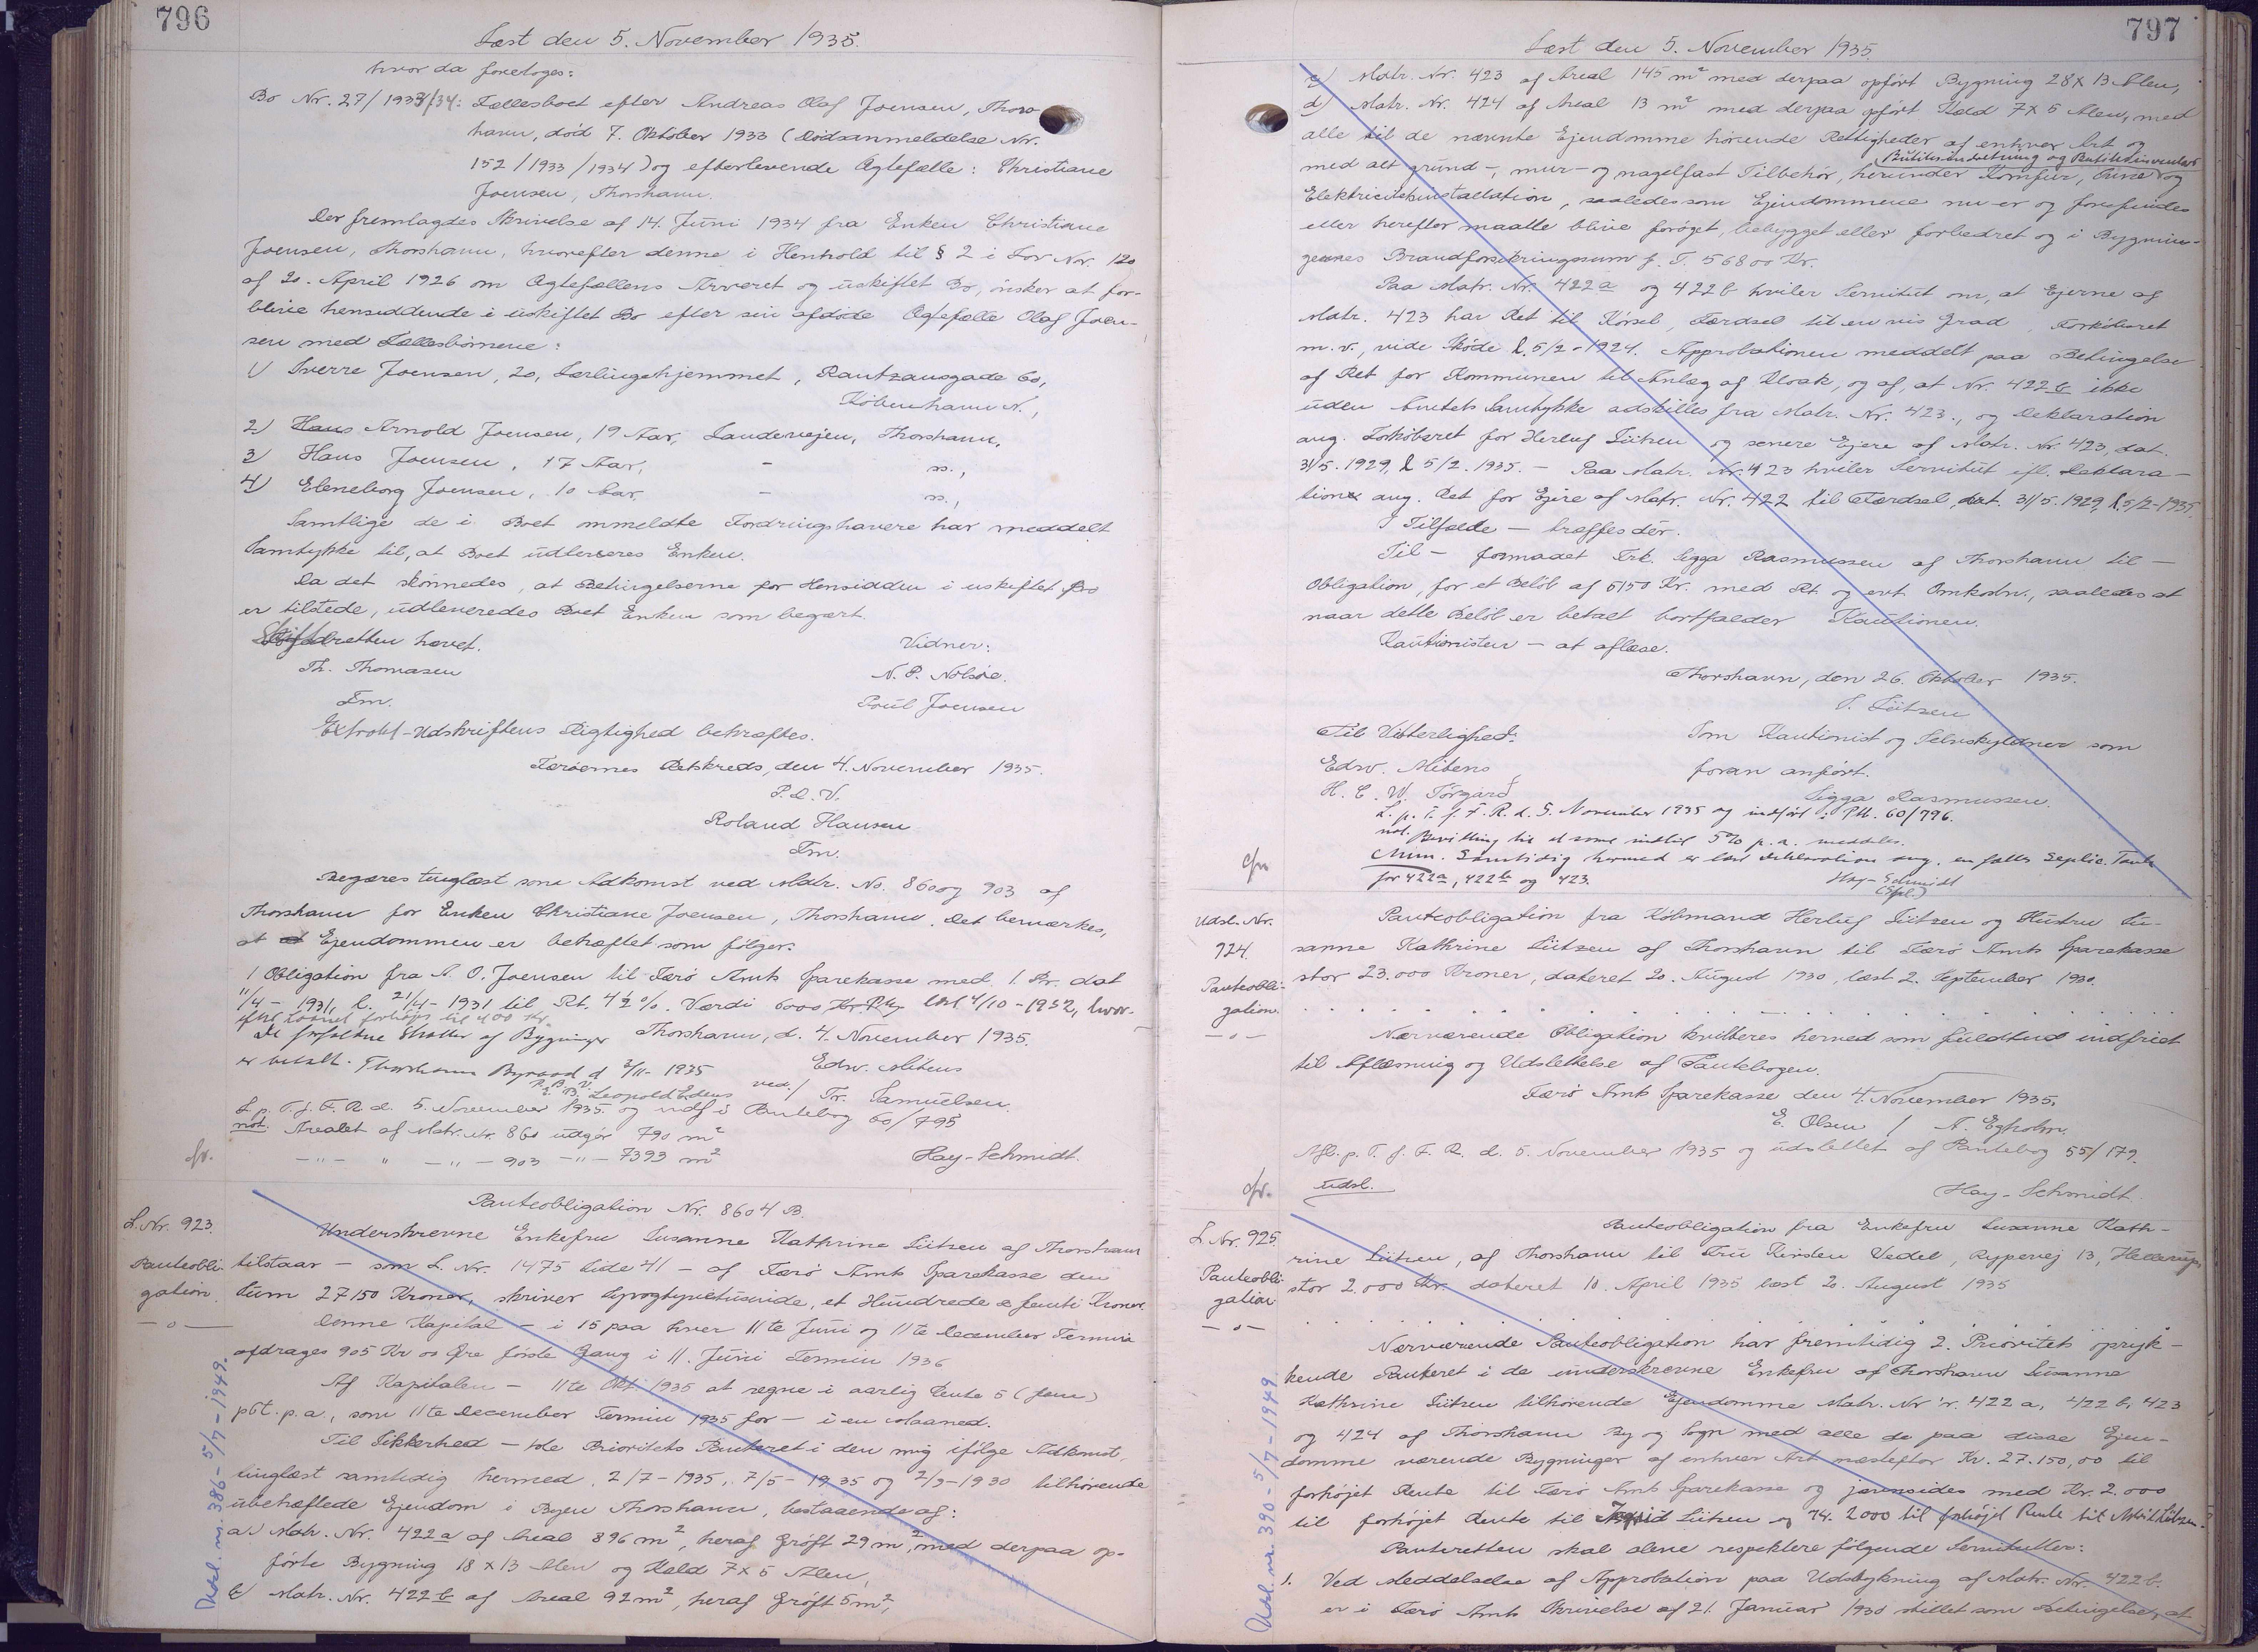 796
Læst den 5. November 1935.
hvor da foretoges:
Bo Nr. 27/1933/34: Fællesboet efter Andreas Olaf Joensen, Thors
havn, død 7. Oktober 1933 (Dødsanmeldelse Nr.
152/1933/1934) og efterlevende Ægtefælle: Christiane
Joensen, Thorshavn.
Der fremlagdes Skrivelse af 14. Juni 1934 fra Enken Christiane
Joensen, Thorshavn, hvorefter denne i Henhold til § 2 i Lov Nr. 120
af 20. April 1926 om Ægtefællens Arveret og uskiftet Bo, ønsker at for-
blive hensiddende i uskiftet Bo efter sin afdøde Ægtefælle Olaf Joen-
sen med Fællesbørnene:
1) Sverre Joensen, 20, Lærlingehjemmet, Rantzausgade 60,
København N.,
2) Hans Arnold Joensen, 19 Aar, Landevejen, Thorshavn,
3) Hans Joensen, 17 Aar, - m.,
4) Eleneborg Joensen, 10 Aar, - m.,
Samtlige de i Boet anmeldte Fordringshavere har meddelt
Samtykke til, at Boet udleveres Enken.
Da det skønnedes, at Betingelserne for Hensidden i uskiftet Bo
er tilstede, udleveredes Boet Enken som begært.
Skifteretten hævet. Vidner:
Th. Thomasen N. P. Nolsøe.
Fm. Poul Joensen
Extrakt-Udskriftens Rigtighed bekræftes.
Færøernes Retskreds, den 4. November 1935.
P. D. V.
Roland Hansen
Fm.
Begæres tinglæst som Adkomst ved Matr. No. 860 og 903 af
Thorshavn for Enken Christiane Joensen, Thorshavn. Det bemærkes,
at Ejendommen er behæftet som følger:
1 Obligation fra A. O. Joensen til Færø Amts Sparekasse med 1. Pr. dat
11/4 - 1931, l. 21/4 - 1931 til Rt. 4½ %. Værdi 6000 Kr. læst 4/10 - 1932, hvor-
efter Laanet forhøjes til 400 Kr.
De forfaldne Skatter af Bygninger Thorshavn, d. 4. November 1935.
er betalt. Thorshavns Byraad d 2/11 - 1935 Edw. Mitens
P. B. V. Leopold ved / Tr. Samuelsen.
L. p. T. f. F. R. d. 5. November 1935. og indf i Pantebog 60/795
not. Arealet af Matr. Nr. 860 udgør 790 m²
cfr. -"- " -"- 903 -"- 7393 m² Hay-Schmidt.
Pantobligation Nr. 8604 B.
L. Nr. 923.
Panteobli-
gation.
-o-
Underskrevne Enkefru Susanne Kathrine Lützen af Thorshavn
tilstaar - som L. Nr. 1475 Side 41 - af Færø Amts Sparekasse den
Sum 27150 Kroner, skriver Syvogtyvetusinde, et Hundrede & femti Kroner.
Denne Kapital - i 15 paa hver 11te Juni og 11te December Termin
afdrages 905 Kr 00 Øre første Gang i 11. Juni Termin 1936
Af Kapitalen - 11te Okt 1935 at regne i aarlig Rente 5 (fem)
pCt. p.a., som 11te December Termin 1935 for - i en Maaned.
Til Sikkerhed - 1ste Prioritets Panteret i den mig ifølge Adkomst,
tinglæst samtidig hermed, 2/7 - 1935, 7/5 - 1935 og 2/9 - 1930 tilhørende
ubehæftede Ejendom i Byen Thorshavn, bestaaende af:
a) Matr. Nr. 422a af Areal 896 m², heraf Grøft 29 m², med derpaa op-
førte Bygning 18 x 13 Alen og Hald 7 x 5 Alen,
b) Matr. Nr. 422b af Areal 92 m², heraf Grøft 5 m²,
Udsl. nr. 386 - 5/7 - 1949.
797
Læst den 5. November 1935.
c) Matr. Nr. 423 af Areal 145 m² med derpaa opført Bygning 28 x 13 Alen,
d) Matr. Nr. 424 af Areal 13 m² med derpaa opført Hald 7 x 5 Alen, med
alle til de nævnte Ejendomme hørende Rettigheder af enhver Art og
med alt grund-, mur- og nagelfast Tilbehør, herunder Komfur, Ovne og
Butiksindretning og Butiksinventar
Elektricitetsinstallation, saaledes som Ejendommene nu er og forefindes
eller herefter maatte blive forøget, bebygget eller forbedret og i Bygnin-
gernes Brandforsikringssum f. T. 56800 Kr.
Paa Matr. Nr. 422a og 422b hviler Servitut om, at Ejerne af
Matr. 423 har Ret til Kørsel, Færdsel til en vis Grad, Forkøbsret
m.v., vide Skøde l. 5/2 - 1924. Approbationen meddelt paa Betingelse
af Ret for Kommunen til Anlæg af Kloak, og af, at Nr. 422b ikke
uden Amtets Samtykke adskilles fra Matr. Nr. 423., og Deklaration
ang. Forkøbsret for Herluf Lützen og senere Ejere af Matr. Nr. 423, dat.
31/5. 1929, l 5/2. 1935. - Paa Matr. Nr. 423 hviler Servitut ifl. Deklara-
tion ang. Ret for Ejere af Matr. Nr. 422 til Færdsel, dat. 31/5. 1929, l. 5/2 - 1935.
I Tilfælde - træffes dér.
Til - formaaet Frk. Sigga Rasmussen af Thorshavn til -
Obligation, for et Beløb af 5150 Kr. med Rt. og evt Omkostn., saaledes at
naar dette Beløb er betalt bortfalder Kautionen.
Kautionisten - at aflæse.
Thorshavn, den 26. Oktober 1935.
S. Lützen
Til Vitterlighed: Som Kautionist og Selvskyldner som
Edw. Mitens foran anført.
H. C. W. Tórgarð Sigga Rasmussen.
L. p. T. f. F. R. d. 5. November 1935 og indført i Ptb. 60/796.
not. Bevilling til at svare indtil 5% p.a. meddeles.
cfr. Anm. Samtidig hermed er læst Deklaration ang. en fælles Septic Tank
for 422a, 422b og 423. Hay-Schmidt
Udsl. Nr.
924.
Panteobli-
gation.
-o-
Panteobligation fra Købmand Herluf Lützen og Hustru Su-
sanne Kathrine Lützen af Thorshavn til Færø Amts Sparekasse
stor 23.000 Kroner, dateret 20. August 1930, læst 2. September 1930.
Nærværende Obligation kvitteres herved som fuldtud indfriet
til Aflæsning og Udslettelse af Pantebogen.
Færø Amts Sparekasse den 4. November 1935.
E. Olsen / A. Egholm.
Afl. p. T. f. F. R. d. 5. November 1935 og udslettet af Pantebog 55/179.
cfr. udsl. Hay-Schmidt.
L. Nr. 925.
Panteobli-
gation
-o-
Panteobligation fra Enkefru Susanne Kath-
rine Lützen, af Thorshavn til Fru Kirsten Vedel, Rypevej 13, Hellerup,
stor 2.000 Kr. dateret 10. April 1935 læst 20. August 1935
Nærværende Panteobligation har fremtidig 2. Prioritets opryk-
kende Panteret i de underskrevne Enkefru af Thorshavn Susanne
Kathrine Lützen tilhørende Ejendomme Matr. Nr 'r. 422 a, 422 b, 423
og 424 af Thorshavn By og Sogn med alle de paa disse Ejen-
domme værende Bygninger af enhver Art næstefter Kr. 27.150,00 til
forhøjet Rente til Færø Amts Sparekasse og jævnsides med Kr. 2.000
til forhøjet Rente til Lützen og Kr. 2000 til forhøjet Rente til Lützen.
Panteretten skal alene respektere følgende Servitutter:
1. Ved Meddelelse af Approbation paa Udstykning af Matr. Nr. 422 b.
er i Færø Amts Skrivelse af 21. Januar 1930 stillet som Betingelse, at
Udsl. nr. 390 - 5/7 - 1949.